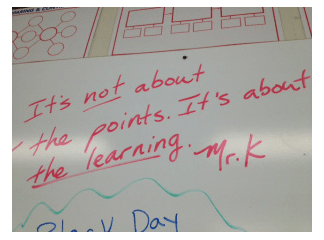 It's not about
the points. It's about
the learning. Mr. K
Black Day